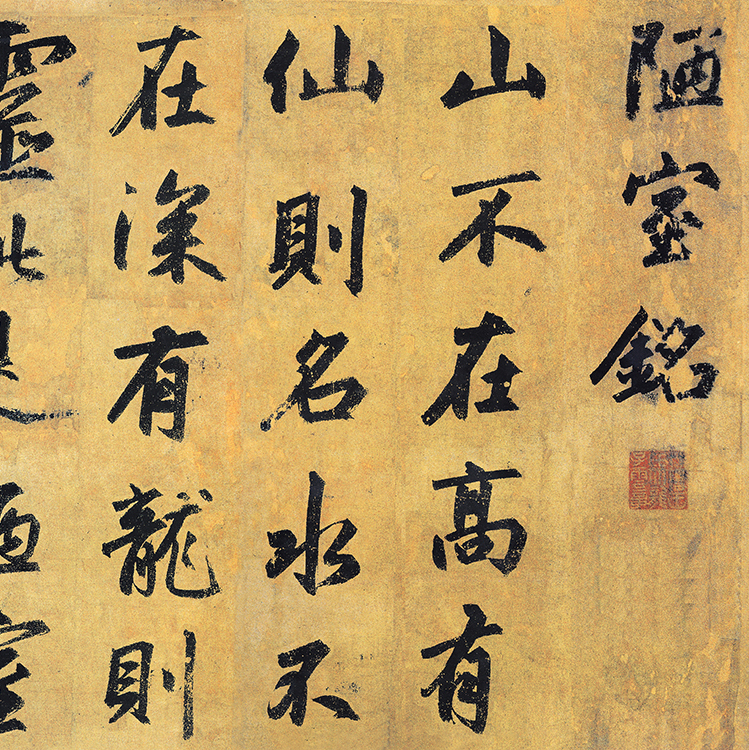 陋室銘
山不在高有
仙則名水不
在深有龍則
靈斯是陋室